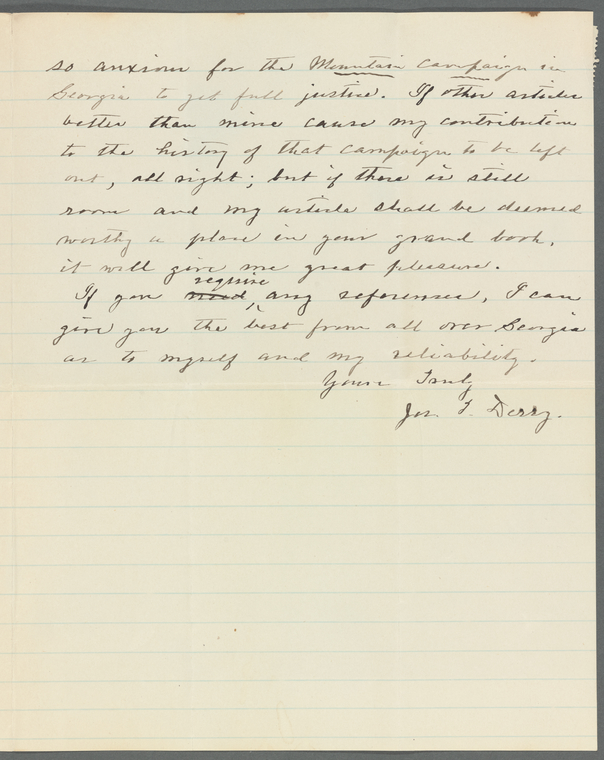 so anxious for the Mountain campaign in
Georgia to get full justice. If other articles
better than mine cause my contribution
to the history of that campaign to be left
out, all right; but if there is still
room and my article shall be deemed
worthy a place in your grand book,
it will give me great pleasure.
If you need require any references, I can
give you the best from all over Georgia
as to myself and my reliability.
Yours Truly
Jos. T. Derry.